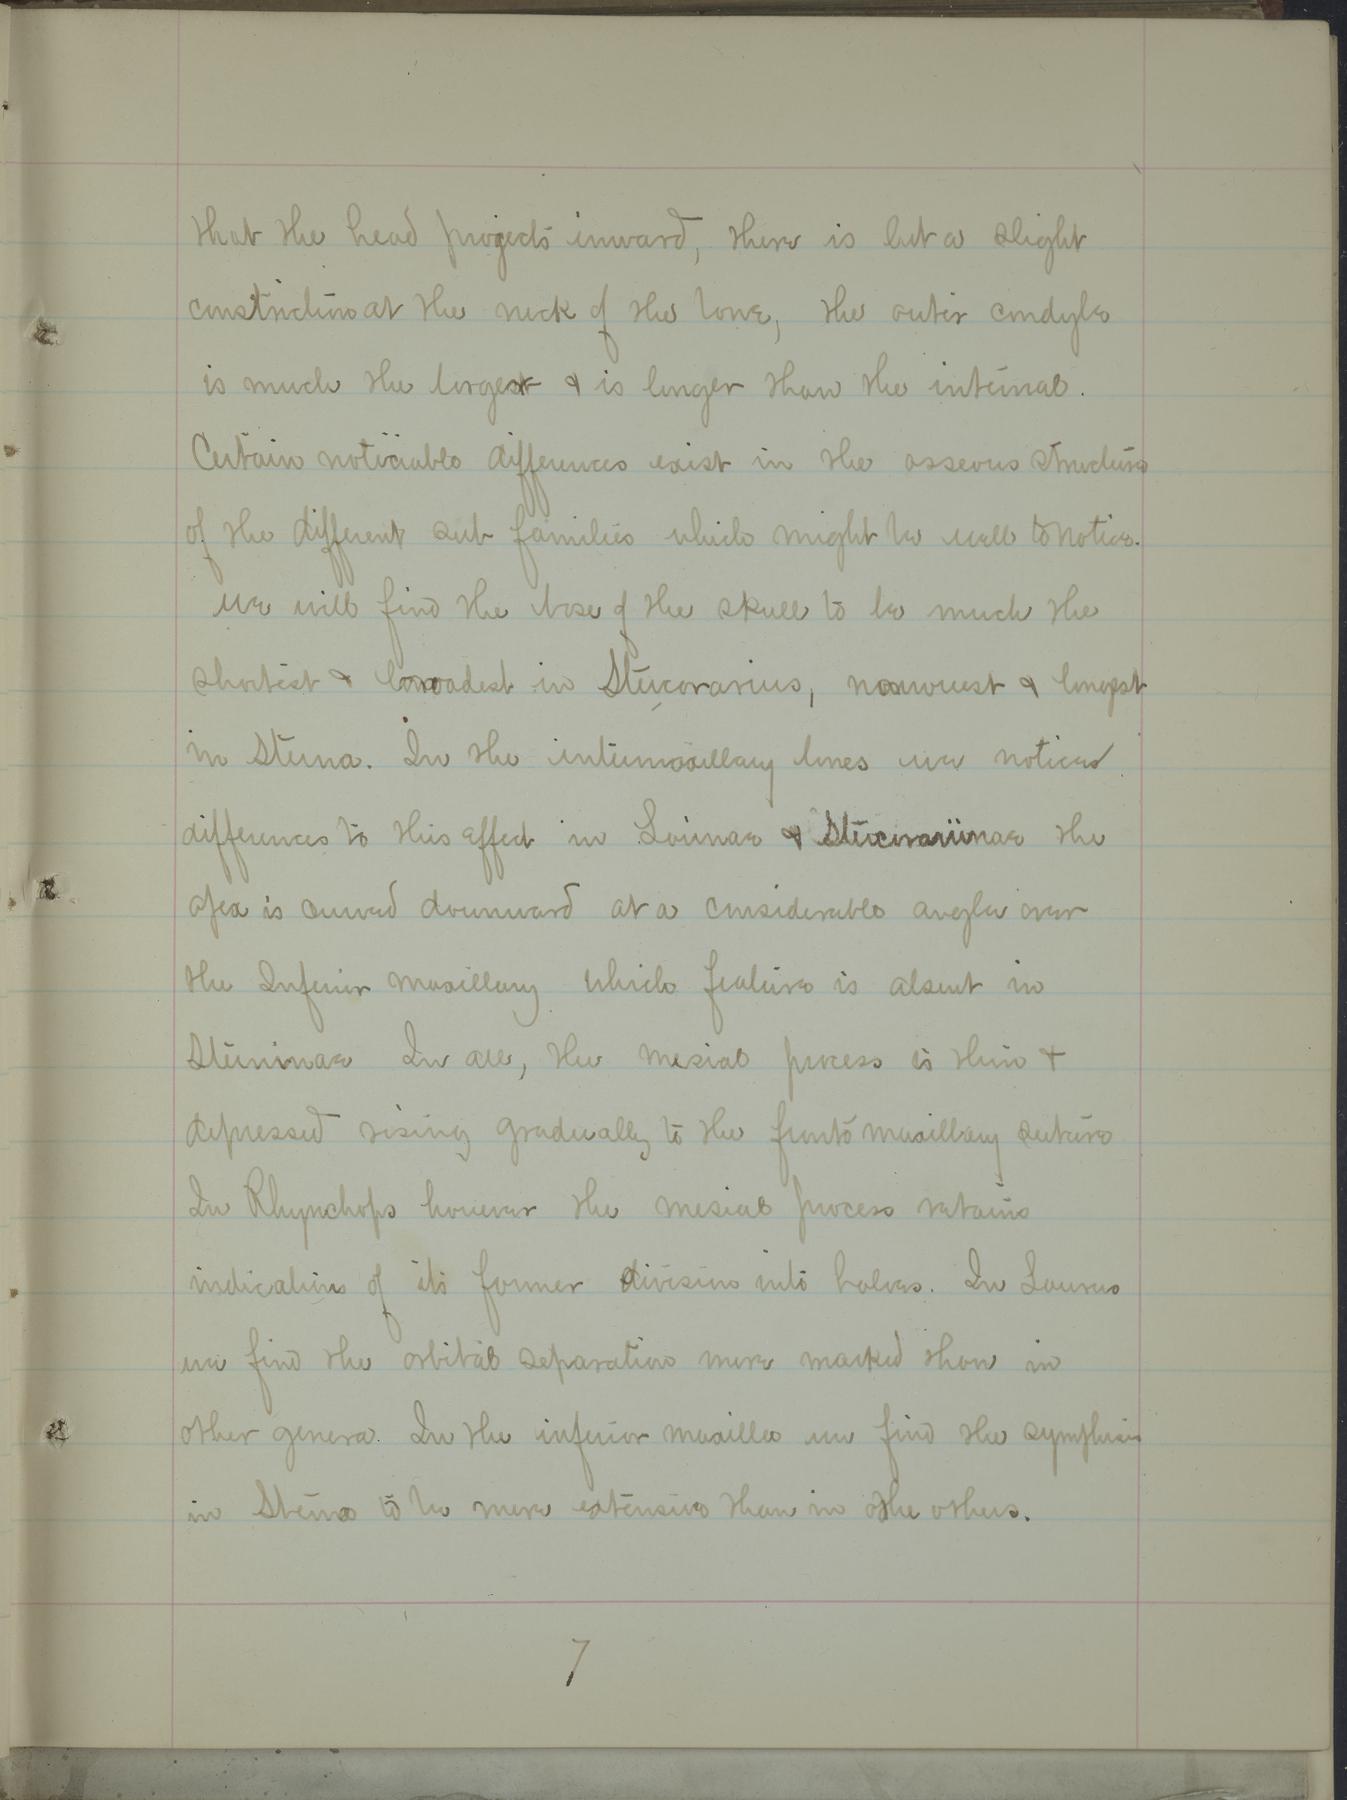 that the head projects inward, there is but a slight
constriction at the neck of the bone, the outer condyle
is much the largest & is longer than the internal.
Certain noticiable differences exist in the osseous structure
of the different sub families which might be well to notice.
We will find the base of the skull to be much the
shortest & broadest in Stercorarius, narrowest & longest
in Sterna. In the intermaxillary bones we notice
differences to this effect in Larinae & Stercorariinae the
apex is curved downward at a considerable angle over
the Inferior maxillary which feature is absent in
Sterninae In all, the mesial process is thin &
depressed rising gradually to the fronto maxillary suture
In Rhynchops however the mesial process retains
indications of its former division into halves. In Larus
we find the orbital separation more marked than in
other genera. In the inferior maxilla we find the symphisis
in Sterna to be more extensive than in the others.
7